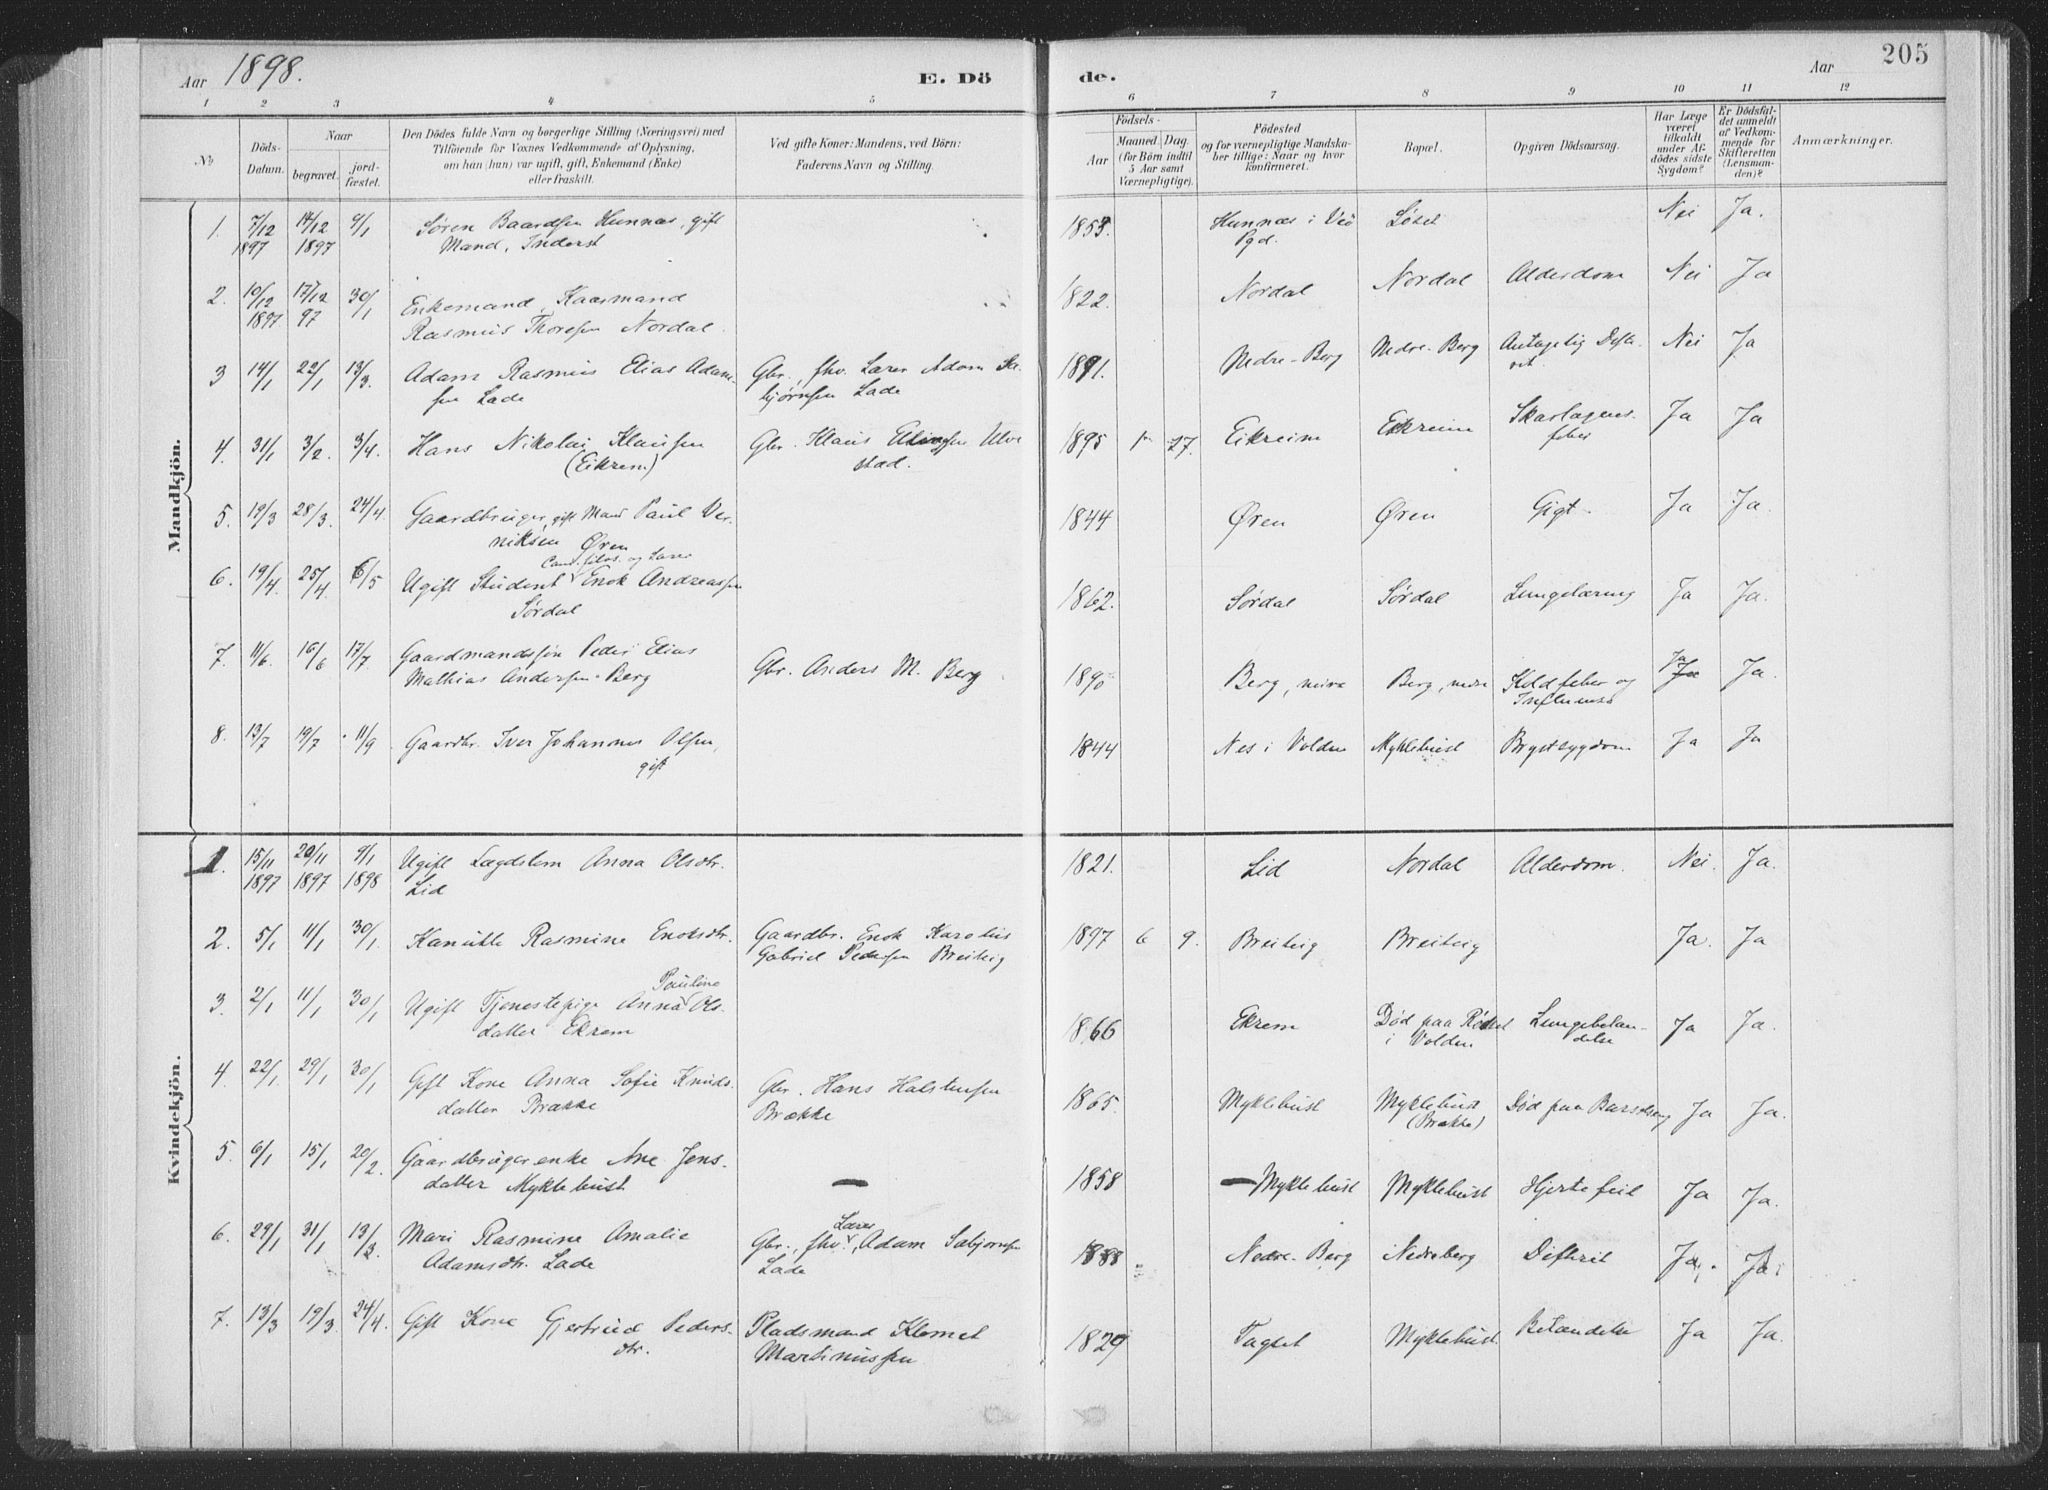 Aar 1898. E. Dö de. Aar 205
1 2 3 4 5 6 7 8 9 10 11 12
No
Döds-Datum.
Naar
begravet.
jord-fæstet.
Den Dödes fulde Navn og borgerlige Stilling (Næringsvei) med
Tilföiende for Voxnes Vedkommende af Oplysning,
om han (hun) var ugift, gift, Enkemand (Enke)
eller fraskilt.
Ved gifte Koner: Mandens, ved Börn:
Faderens Navn og Stilling.
Födsels-
Aar
Maaned Dag.
(for Börn indtil
5 Aar samt
Værnepligtige).
Födested
og for værnepligtige Mandska-
ber tillige: Naar og hvor
konfirmeret.
Bopæl.
Opgiven Dödsaarsag.
Har Læge
været
tilkaldt
under Af-
dödes sidste
Sygdom?
Er Dödsfal-
det anmeldt
af Vedkom-
mende for
Skifteretten
(Lensman-
den)?
Anmærkninger.
Mandkjön.
1. 7/12 14/12 9/1 Søren Baardsen Hunnæs, gift 1853. Hunnæs i Veö Løset Nei Ja.
1897 1897 Mand, Inderst Pgd.
2. 10/12 17/12 30/1 Enkemand, Kaarmand 1822. Nordal Nordal Alderdom Nei Ja
1897 97 Rasmus Thoresen Nordal.
3 14/1 22/1 13/3. Adam Rasmus Elias Adam- Gbr. fhv. Lærer Adam Sæ- 1891. Nedre-Berg Nedre-Berg Antagelig Difte- Nei Ja
sen Lade bjørnsen Lade rit.
4. 31/1 3/2. 3/4. Hans Nikolai Klausen Gbr. Klaus Ulve 1895 1 27. Eikreim Eikreim Skarlagens- Ja Ja
(Eikrem) stad. feber
5. 19/3 28/3. 24/4 Gaardbruger, gift Mand Paul Ver- 1844 Øren Øren Gigt Ja Ja.
niksen Øren
Cand. filos. og Lærer
6. 19/4. 25/4 6/5 Ugift Student Enok Andreassen 1862. Sørdal Sørdal Lungetæring Ja Ja.
Sørdal
7. 11/6. 16/6 17/7 Gaardmandssøn Peder Elias Gbr. Anders M. Berg 1890 Berg, nedre Berg, nedre Koldfeber og Ja Ja.
Mathias Andersen Berg Influensa
8. 13/7 19/7 11/9 Gaardbr. Iver Johannes Olsen, 1844 Nes i Volden Myklebust Brystsygdom Ja Ja
gift
Kvindekjön.
1. 15/11 20/11 9/1 Ugift Lægdslem Anna Olsdtr. 1821. Lid Nordal Alderdom. Nei. Ja.
1897 1897 1898 Lid
2. 5/1 11/1 30/1. Kanutte Rasmine Enoksdtr. Gaardbr. Enok Karolus 1897 6 9. Breiteig Breiteig Ja. Ja
Gabriel Pedersen Breiteig
Pauline
3. 2/1 11/1 30/1 Ugift Tjenestepige Anna Ols- 1866 Ekrem Død paa Rødset Lungebetæn- Ja Ja.
datter Ekrem i Volden delse
4. 22/1 29/1 30/1 Gift Kone Anna Sofie Knuds- Gbr. Hans Halstensen 1865. Myklebust Myklebust Død paa Barselseng Ja Ja.
datter Brække Brække (Brække)
5. 6/1 15/1 20/2. Gaardbrugerenke Ane Jens- — 1858 — Myklebust Myklebust Hjertefeil Ja Ja.
datter Myklebust
6. 29/1 31/1 13/3 Mari Rasmine Amalie Gbr., fhv. Lærer, Adam Sæbjørnsen 1888 Nedre-Berg Nedreberg Difterit Ja. Ja.
Adamsdtr. Lade Lade
7. 13/3 19/3. 24/4. Gift Kone Gjertrud Peders- Pladsmand Klemet 1829 Tagset Myklebust Betændelse Ja Ja.
dtr. Martinussen